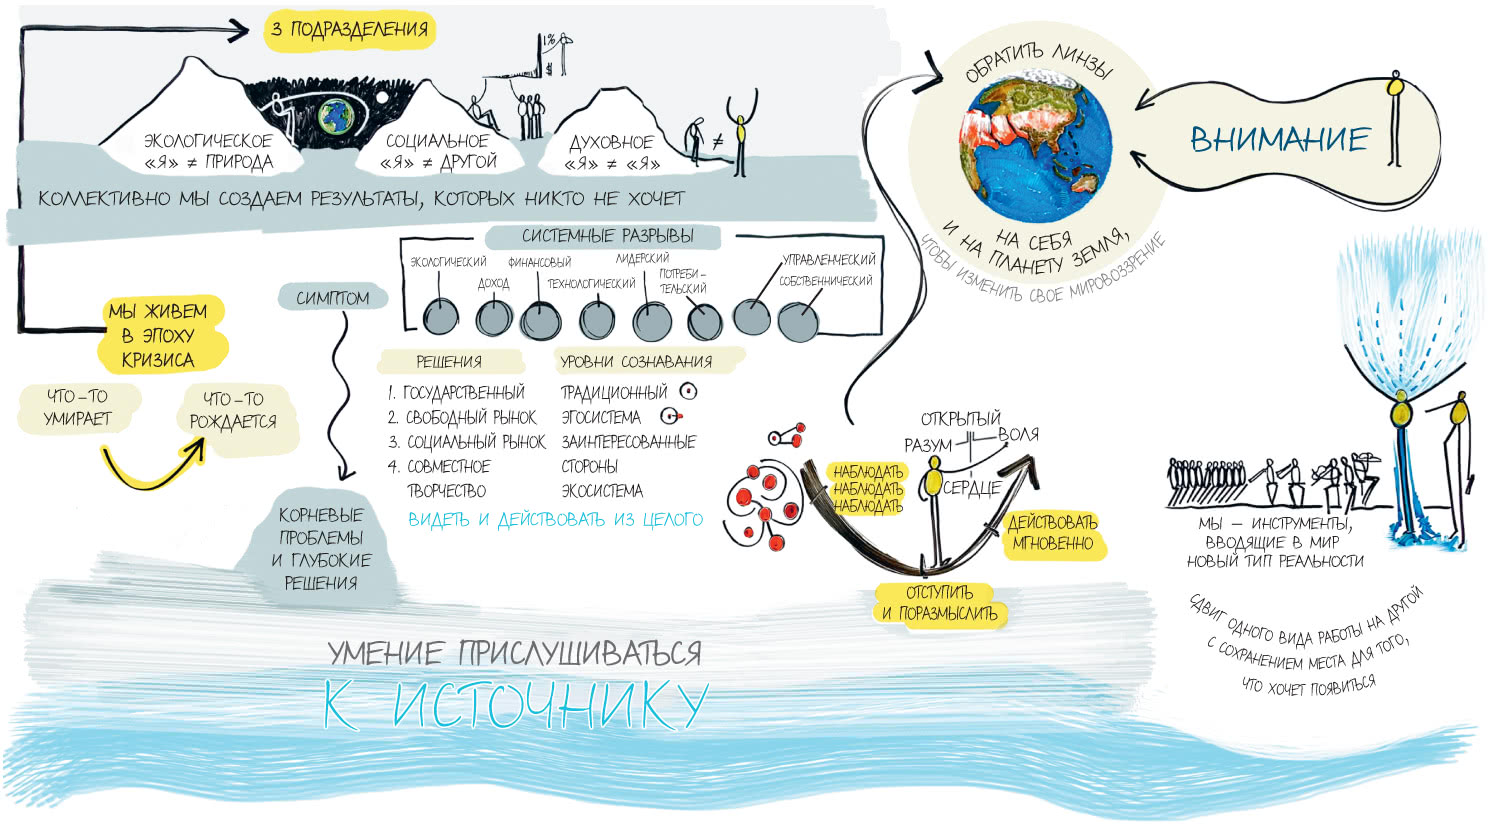 3 ПОДРАЗДЕЛЕНИЯ
1%
$
ЭКОЛОГИЧЕСКОЕ
«Я» ≠ ПРИРОДА
СОЦИАЛЬНОЕ
«Я» ≠ ДРУГОЙ
ДУХОВНОЕ
«Я» ≠ «Я»
≠
КОЛЛЕКТИВНО МЫ СОЗДАЕМ РЕЗУЛЬТАТЫ, КОТОРЫХ НИКТО НЕ ХОЧЕТ
ОБРАТИТЬ ЛИНЗЫ
НА СЕБЯ
И НА ПЛАНЕТУ ЗЕМЛЯ,
ЧТОБЫ ИЗМЕНИТЬ СВОЕ МИРОВОЗЗРЕНИЕ
ВНИМАНИЕ
МЫ ЖИВЕМ
В ЭПОХУ
КРИЗИСА
ЧТО-ТО
УМИРАЕТ
ЧТО-ТО
РОЖДАЕТСЯ
СИМПТОМ
СИСТЕМНЫЕ РАЗРЫВЫ
ЭКОЛОГИЧЕСКИЙ
ДОХОД
ФИНАНСОВЫЙ
ТЕХНОЛОГИЧЕСКИЙ
ЛИДЕРСКИЙ
ПОТРЕБИ-
ТЕЛЬСКИЙ
УПРАВЛЕНЧЕСКИЙ
СОБСТВЕННИЧЕСКИЙ
РЕШЕНИЯ
1. ГОСУДАРСТВЕННЫЙ
2. СВОБОДНЫЙ РЫНОК
3. СОЦИАЛЬНЫЙ РЫНОК
4. СОВМЕСТНОЕ
ТВОРЧЕСТВО
УРОВНИ СОЗНАВАНИЯ
ТРАДИЦИОННЫЙ
ЭГОСИСТЕМА
ЗАИНТЕРЕСОВАННЫЕ
СТОРОНЫ
ЭКОСИСТЕМА
ВИДЕТЬ И ДЕЙСТВОВАТЬ ИЗ ЦЕЛОГО
КОРНЕВЫЕ
ПРОБЛЕМЫ
И ГЛУБОКИЕ
РЕШЕНИЯ
ОТКРЫТЫЙ
РАЗУМ
ВОЛЯ
СЕРДЦЕ
НАБЛЮДАТЬ
НАБЛЮДАТЬ
НАБЛЮДАТЬ
ДЕЙСТВОВАТЬ
МГНОВЕННО
ОТСТУПИТЬ
И ПОРАЗМЫСЛИТЬ
МЫ – ИНСТРУМЕНТЫ,
ВВОДЯЩИЕ В МИР
НОВЫЙ ТИП РЕАЛЬНОСТИ
СДВИГ ОДНОГО ВИДА РАБОТЫ НА ДРУГОЙ
С СОХРАНЕНИЕМ МЕСТА ДЛЯ ТОГО,
ЧТО ХОЧЕТ ПОЯВИТЬСЯ
УМЕНИЕ ПРИСЛУШИВАТЬСЯ
К ИСТОЧНИКУ